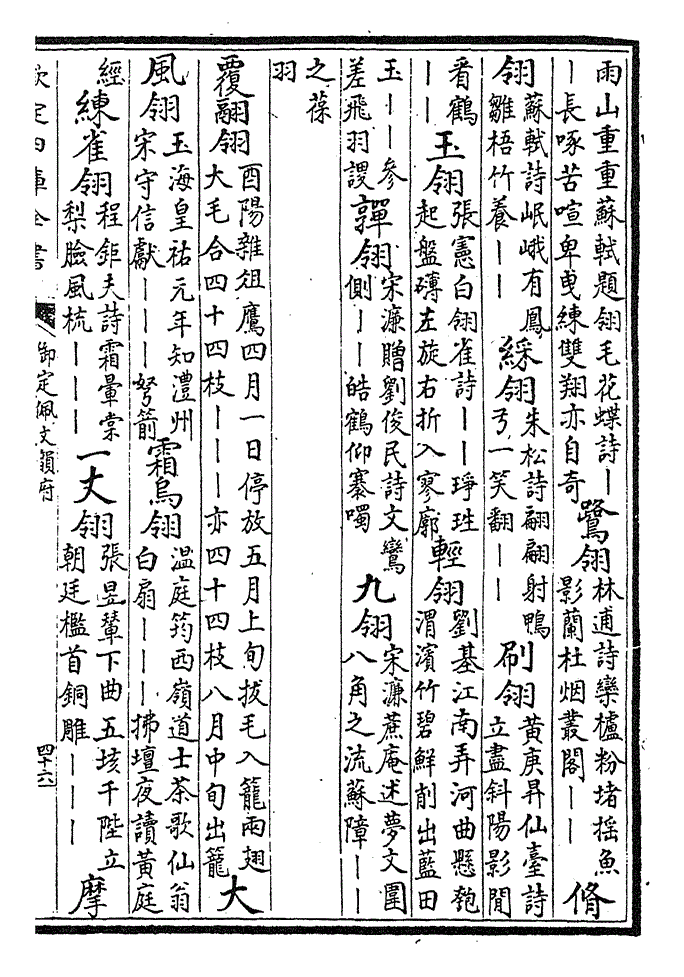 雨山重重蘇軾題翎毛花蝶詩｜
｜長啄苦喧卑曵練雙翔亦自奇
鷺翎
林逋詩欒櫨粉堵揺魚
影蘭杜烟叢閣｜｜
脩
翎
蘇軾詩岷峨有鳳
雛梧竹養｜｜
綵翎
朱松詩翩翩射鴨
弓一笑翻｜｜
刷翎
黄庚昇仙臺詩
立盡斜陽影閒
看鶴
｜｜
玉翎
張憲白翎雀詩｜｜琤珄
起盤礴左旋右折入寥廓
輕翎
劉基江南弄河曲懸匏
渭濱竹碧鮮削出藍田
玉｜｜參
差飛羽謖
嚲翎
宋濂贈劉俊民詩文鸞
側｜｜皓鶴仰搴噣
九翎
宋濂蔗庵述夢文圍
八角之流蘇障｜｜
之葆
羽
覆翮翎
酉陽雜俎鷹四月一日停放五月上旬拔毛入籠兩翅
大毛合四十四枝｜｜｜亦四十四枝八月中旬出籠
大
風翎
玉海皇祐元年知澧州
宋守信獻｜｜｜弩箭
霜烏翎
温庭筠西嶺道士茶歌仙翁
白扇｜｜｜拂壇夜讀黄庭
經
練雀翎
程鉅夫詩霜暈棠
梨臉風梳｜｜｜
一丈翎
張昱輦下曲五垓千陛立
朝廷檻首銅雕｜｜｜
摩
欽定四庫全書
御定佩文韻府
四十六